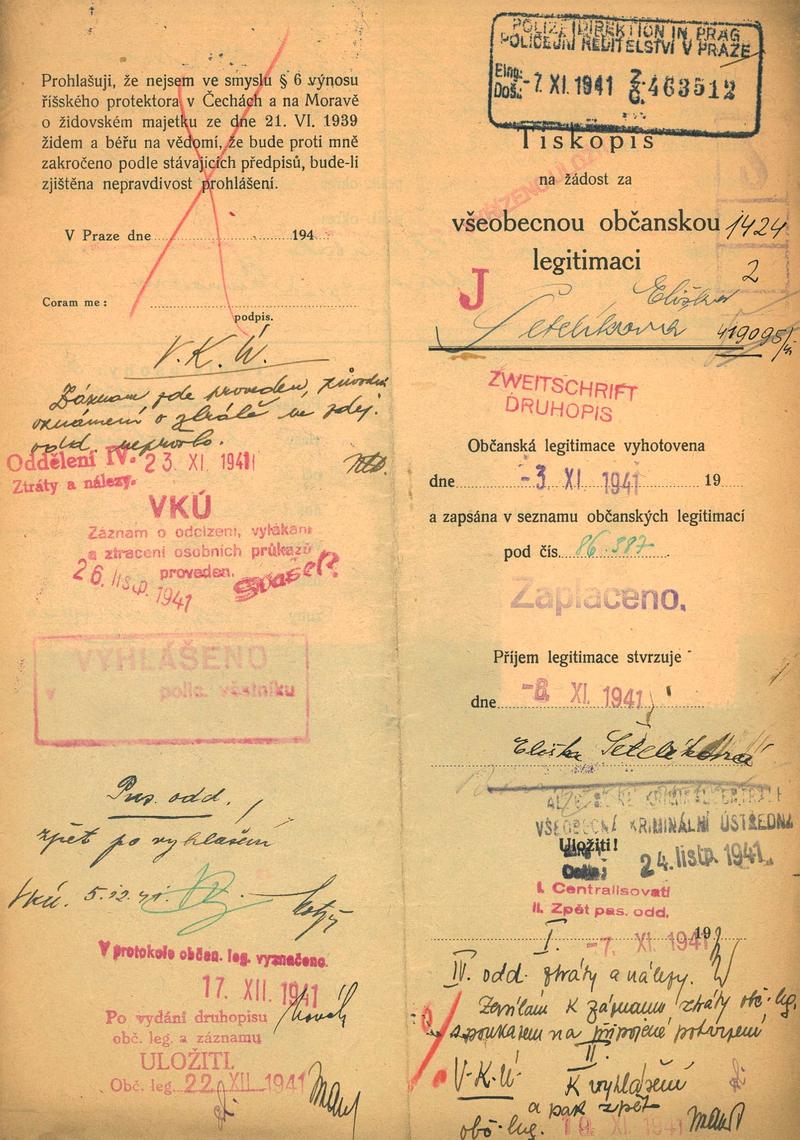 Prohlašuji, že nejsem ve smyslu § 6 výnosu
říšského protektora v Čechách a na Moravě
o židovském majetku ze dne 21. VI. 1939
židem a běřu na vědomí, že bude proti mně
zakročeno podle stávajících předpisů, bude-li
zjištěna nepravdivost prohlášení.
V Praze dne 194
Coram me :
podpis.
V.K.Ú.
Záznam zde proveden, původní
oznámení o ztrátě ve zdej.
odd.
Oddělení IV. 23 XI. 1941
Ztráty a nálezy.
VKÚ
Záznam o odcizení, vylákání
a ztracení osobních průkazů
proveden.
26. listp. 1941
VYHLÁŠENO
v polic. věstníku
Pas. odd.
zpět po vyhlášení
VKÚ. 5.12.41.
V protokole občan. leg. vyznačeno.
17. XII. 1941
Po vydání druhopisu
obč. leg. a záznamu
ULOŽITI.
Obč. leg. 22. XII. 1941
POLIZEIDIREKTION IN PRAG
POLICEJNÍ ŘEDITELSTVÍ V PRAZE
Eing.:
Doš.: -7. XI. 1941 Z. Č. 463512
Tiskopis
na žádost za
všeobecnou občanskou
legitimaci
1424
2
J
Eliška
Setelíková
419095
ZWEITSCHRIFT
DRUHOPIS
Občanská legitimace vyhotovena
dne -3. XI. 1941 19
a zapsána v seznamu občanských legitimací
pod čís. 86.387
Zaplaceno.
Příjem legitimace stvrzuje
dne -8. XI. 1941
Eliška Setelíková
VŠEOBECNÁ KRIMINÁLNÍ ÚSTŘEDNA
Uložiti!
24. listp. 1941
I. Centralisovati
II. Zpět pas. odd.
I. -7. XI. 1941 19
IV. odd. ztráty a nálezy.
Zasílám k záznamu ztráty obč. leg.
s poukazem na připojené potvrzení
II.
V-K-Ú
K vyhlášení
a pak zpět
obč. leg. 19. XI. 1941